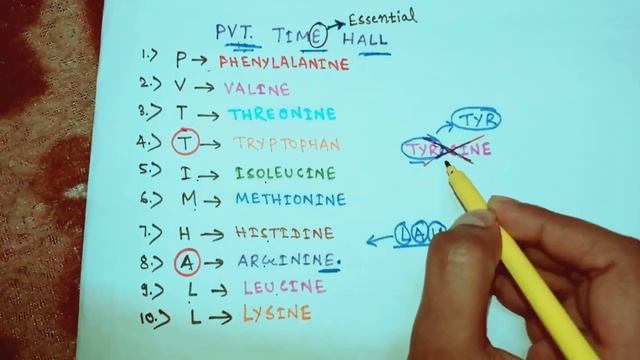 Essential
PVT. TIME HALL
1.) P → PHENYLALANINE
2.) V → VALINE
3.) T → THREONINE
4.) T → TRYPTOPHAN
5.) I → ISOLEUCINE
6.) M → METHIONINE
7.) H → HISTIDINE
8.) A → ARGININE.
9.) L → LEUCINE
10.) L → LYSINE
TYR
TYROSINE
← LA